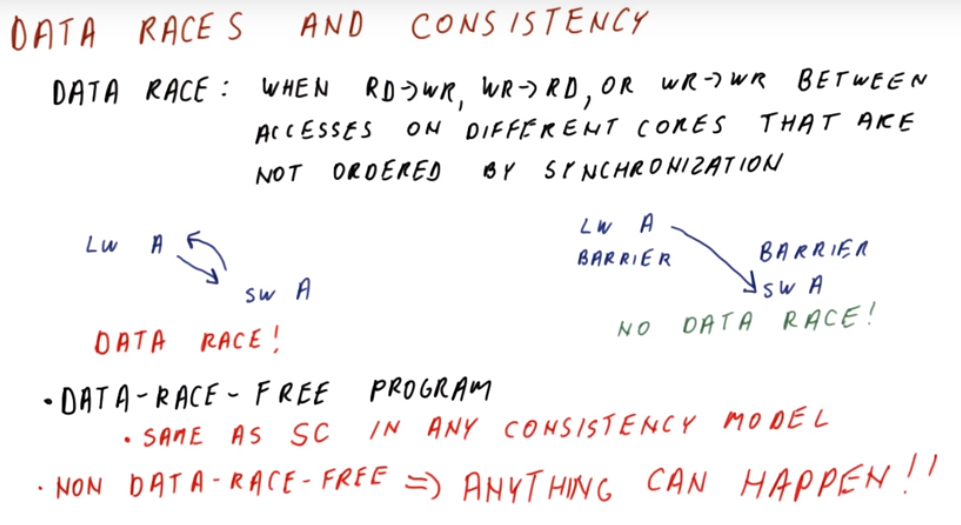 DATA RACES AND CONSISTENCY
DATA RACE: WHEN RD→WR, WR→RD, OR WR→WR BETWEEN
ACCESSES ON DIFFERENT CORES THAT ARE
NOT ORDERED BY SYNCHRONIZATION
LW A
SW A
DATA RACE!
LW A
BARRIER
BARRIER
SW A
NO DATA RACE!
• DATA-RACE-FREE PROGRAM
• SAME AS SC IN ANY CONSISTENCY MODEL
• NON DATA-RACE-FREE => ANYTHING CAN HAPPEN!!